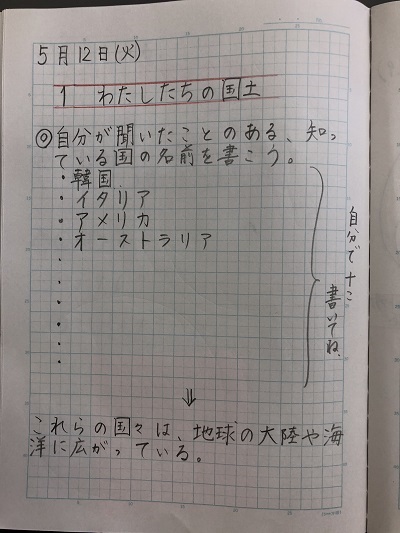 5月12日(火)
1 わたしたちの国土
◎自分が聞いたことのある、知っ
ている国の名前を書こう。
・韓国
・イタリア
・アメリカ
・オーストラリア
・
・
・
・
・
・
自分で十こ
書いてね。
⇓
これらの国々は、地球の大陸や海
洋に広がっている。